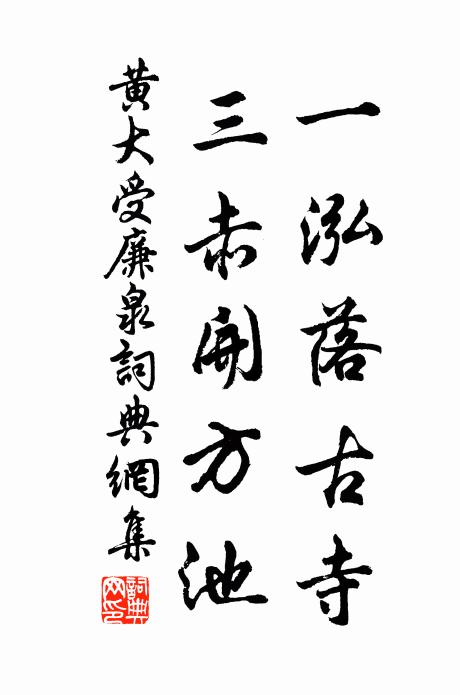 一泓落古寺
三赤開方池
黃大受廉泉詞典網集
詞典